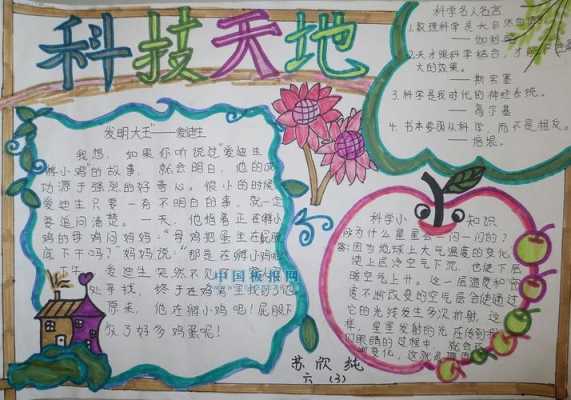 科技天地
发明大王"——爱迪生
我想,如果你听说过"爱迪生
孵小鸡"的故事,就会明白,他的成
功源于强烈的好奇心。很小的时候
爱迪生只要一有不明白的事,就一定
要追问清楚。一天,他指着正在孵小
鸡的母鸡问妈妈:"母鸡把蛋坐在屁股
底下干吗?"妈妈说:"那是在孵小鸡呢
爱迪生突然不见了
处寻找,终于在鸡窝里找到了他
原来,他在孵小鸡呢!屁股下
放了好多鸡蛋呢!
中国板报网
科学名人名言
1.数理科学是大自然
——伽利略
2.天才跟科学结合,才能
大的效果。
——斯宾塞
3.科学是我时代的神经系统。
——高尔基
4.书本要因从科学,而不是相反。
——培根。
科学小知识
为什么星星会一闪一闪的?
答:因为地球上大气温度的变化,
使上层冷空气下沉,也使下层
暖空气上升。这一层温度和密
度不断改变的空气层会使通过
它的光线发生多次折射,这
样,星星发射的光在传到我
们眼睛的过程中,就会
变化,这就
苏欣纯
六(3)